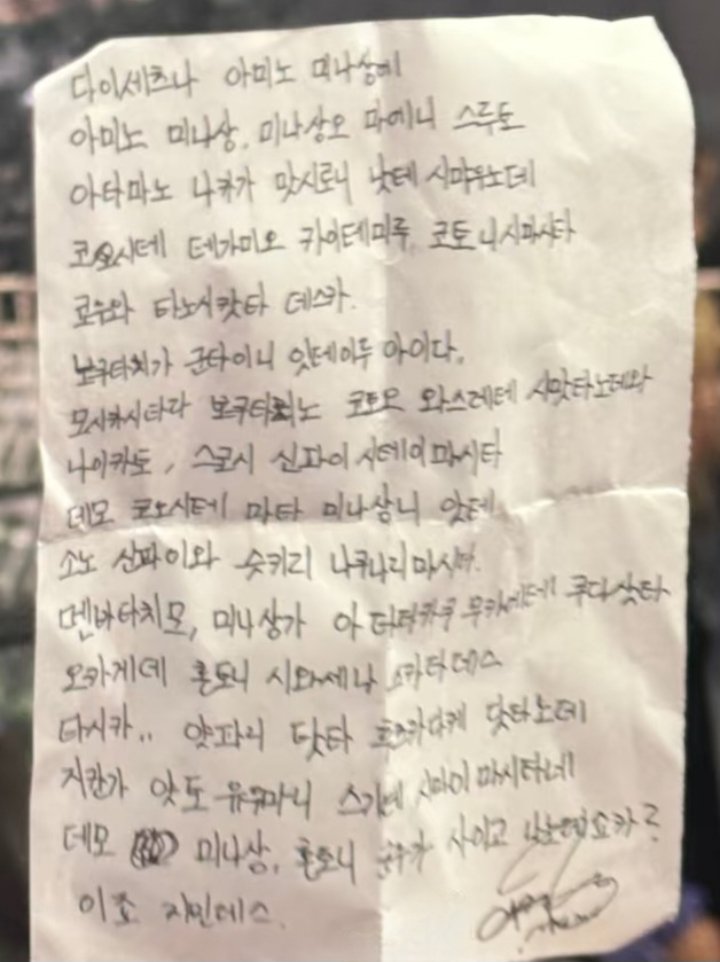 다이세츠나 아미노 미나상에
아미노 미나상, 미나상오 마에니 스루토
아타마노 나카가 맛시로니 낫테 시마우노데
코오시테 테가미오 카이테미루 코토니시마시타
쿄우와 타노시캇타 데스카.
보쿠타치가 군타이니 잇테이루 아이다,
모시카시타라 보쿠타치노 코토오 와스레테 시맛타노데와
나이카토, 스코시 신파이 시테이마시타
데모 코오시테 마타 미나상니 앗테
소노 신파이와 슷키리 나쿠나리마시타.
멘바타치모, 미나상가 아타타카쿠 무카에테 쿠다삿타
오카게데 혼토니 시와세나 데스
타시카.. 얏파리 닷타 닷타노데
지칸가 앗토 유우마니 스기테 시마이마시타네
데모 미나상, 혼토니 사이고 카?
이죠 지민데스.